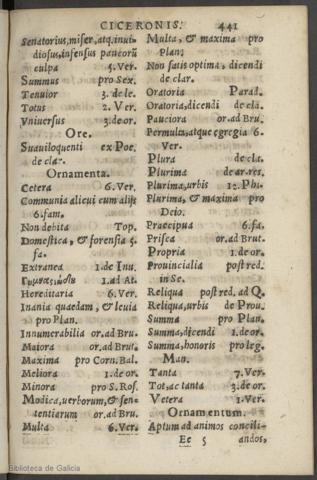 CICERONIS.
441
Senatorius, miser, atq. inui-
diosus, infensus paucorũ
culpa 5. Ver.
Summus pro Sex.
Tenuior 3. de le.
Totus 2. Ver.
Vniuersus 3. de or.
Ore.
Suauiloquenti ex Poe.
de clar.
Ornamenta.
Cetera 6. Ver.
Communia alicui cum alijs
6. fam.
Non debita Top.
Domestica, & forensia 5.
fa.
Extranea 1. de Inu.
1. ad At.
Hereditaria 6. Ver.
Inania quaedam, & leuia
pro Plan.
Innumerabilia or. ad Bru.
Maiora or. ad Brut.
Maxima pro Corn. Bal.
Meliora 1. de or.
Minora pro S. Ros.
Modica, uerborum, & sen-
tentiarum or. ad Bru.
Multa 6. Ver.
Multa, & maxima pro
Plan.
Non satis optima, dicendi
de clar.
Oratoria Parad.
Oratoria, dicendi de cla.
Pauciora or. ad Bru.
Permulta, atque egregia 6.
Ver.
Plura de cla.
Plurima de ar. res.
Plurima, urbis 12. Phi.
Plurima, & maxima pro
Deio.
Praecipua 6. fa.
Prisca or. ad Brut.
Propria 1. de or.
Prouincialia post red.
in Se.
Reliqua post red. ad Q.
Reliqua, urbis de Prou.
Summa pro Plan.
Summa, dicendi 1. de or.
Summa, honoris pro leg.
Man.
Tanta 7. Ver.
Tot, ac tanta 3. de or.
Vetera 1. Ver.
Ornamentum.
Aptum ad animos concili-
Ee 5 andos,
Biblioteca de Galicia